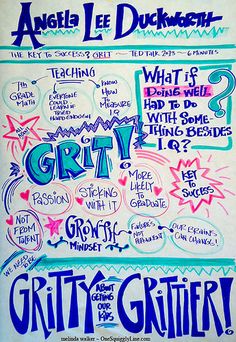 Angela Lee Duckworth
The Key to Success? Grit ~ TED Talk 2013 ~ 6 minutes
Teaching
7th
Grade
Math
Everyone
could
learn if
tried
hard enough
Know
how
measure
IQ
What if
doing well
had to do
with some
thing besides
I.Q.?
Grit!
Passion
Sticking
with it
More
likely
to
graduate
Key
to
Success
Not
from
talent
Growth
Mindset
Failures
not
permanent
Our brains
can change!
We need
to be
Gritty
about
getting
our
kids
Grittier!
melinda walker ~ OneSquigglyLine.com